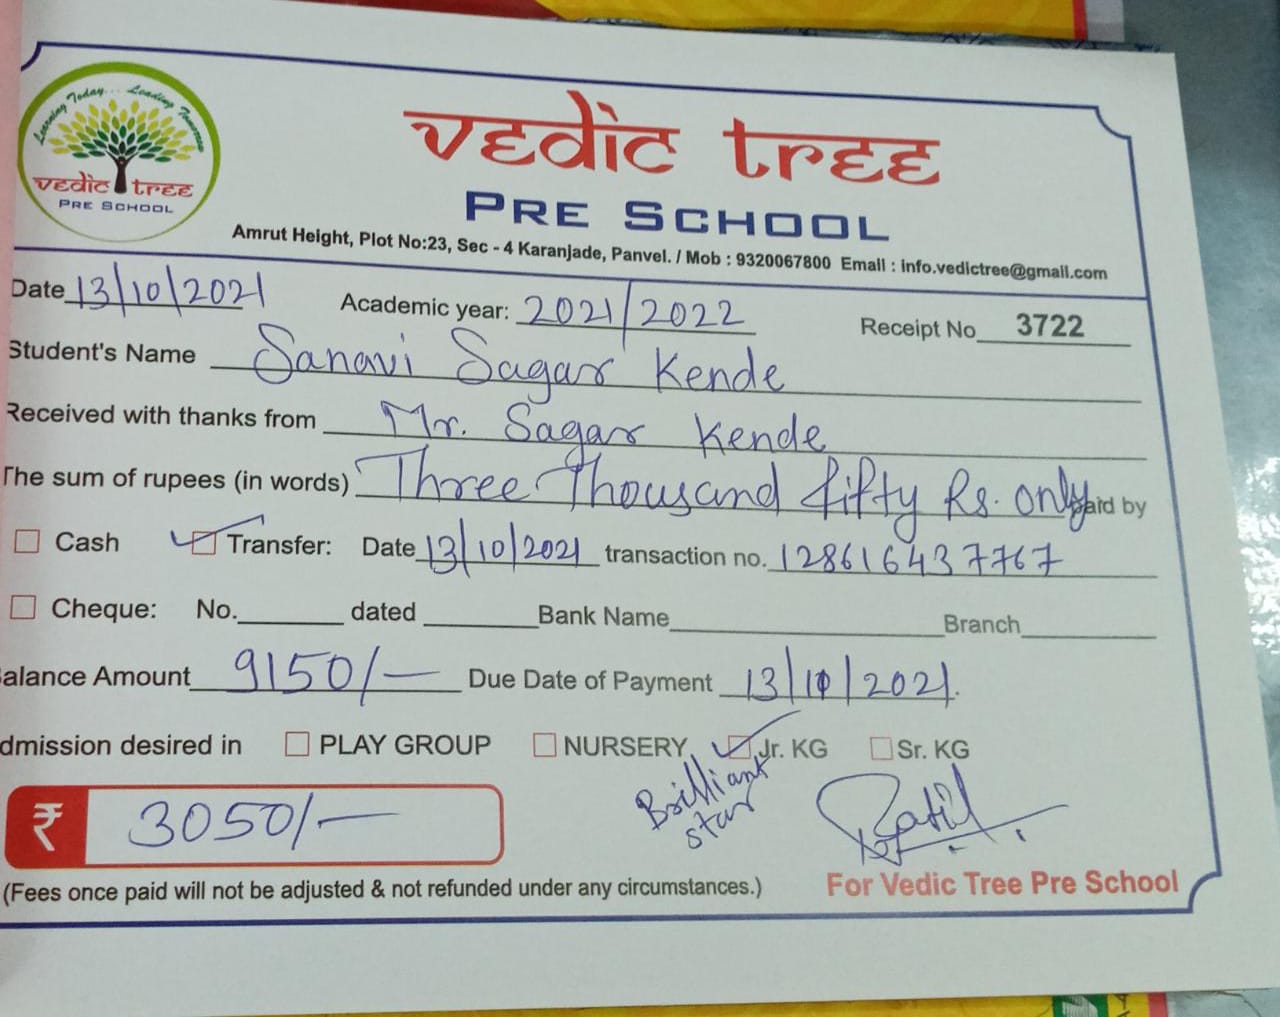 Learning Today... Leading Tomorrow
vedic tree
PRE SCHOOL
vedic tree
PRE SCHOOL
Amrut Height, Plot No:23, Sec - 4 Karanjade, Panvel. / Mob : 9320067800 Email : info.vedictree@gmail.com
Date 13/10/2021 Academic year: 2021/2022 Receipt No 3722
Student's Name Sanavi Sagar Kende
Received with thanks from Mr. Sagar Kende
The sum of rupees (in words) Three Thousand fifty Rs. only paid by
Cash Transfer: Date 13/10/2021 transaction no. 128616437767
Cheque: No. dated Bank Name Branch
alance Amount 9150/- Due Date of Payment 13/10/2021.
dmission desired in PLAY GROUP NURSERY Jr. KG Sr. KG
Brilliant
star
₹ 3050/-
Patil
(Fees once paid will not be adjusted & not refunded under any circumstances.) For Vedic Tree Pre School